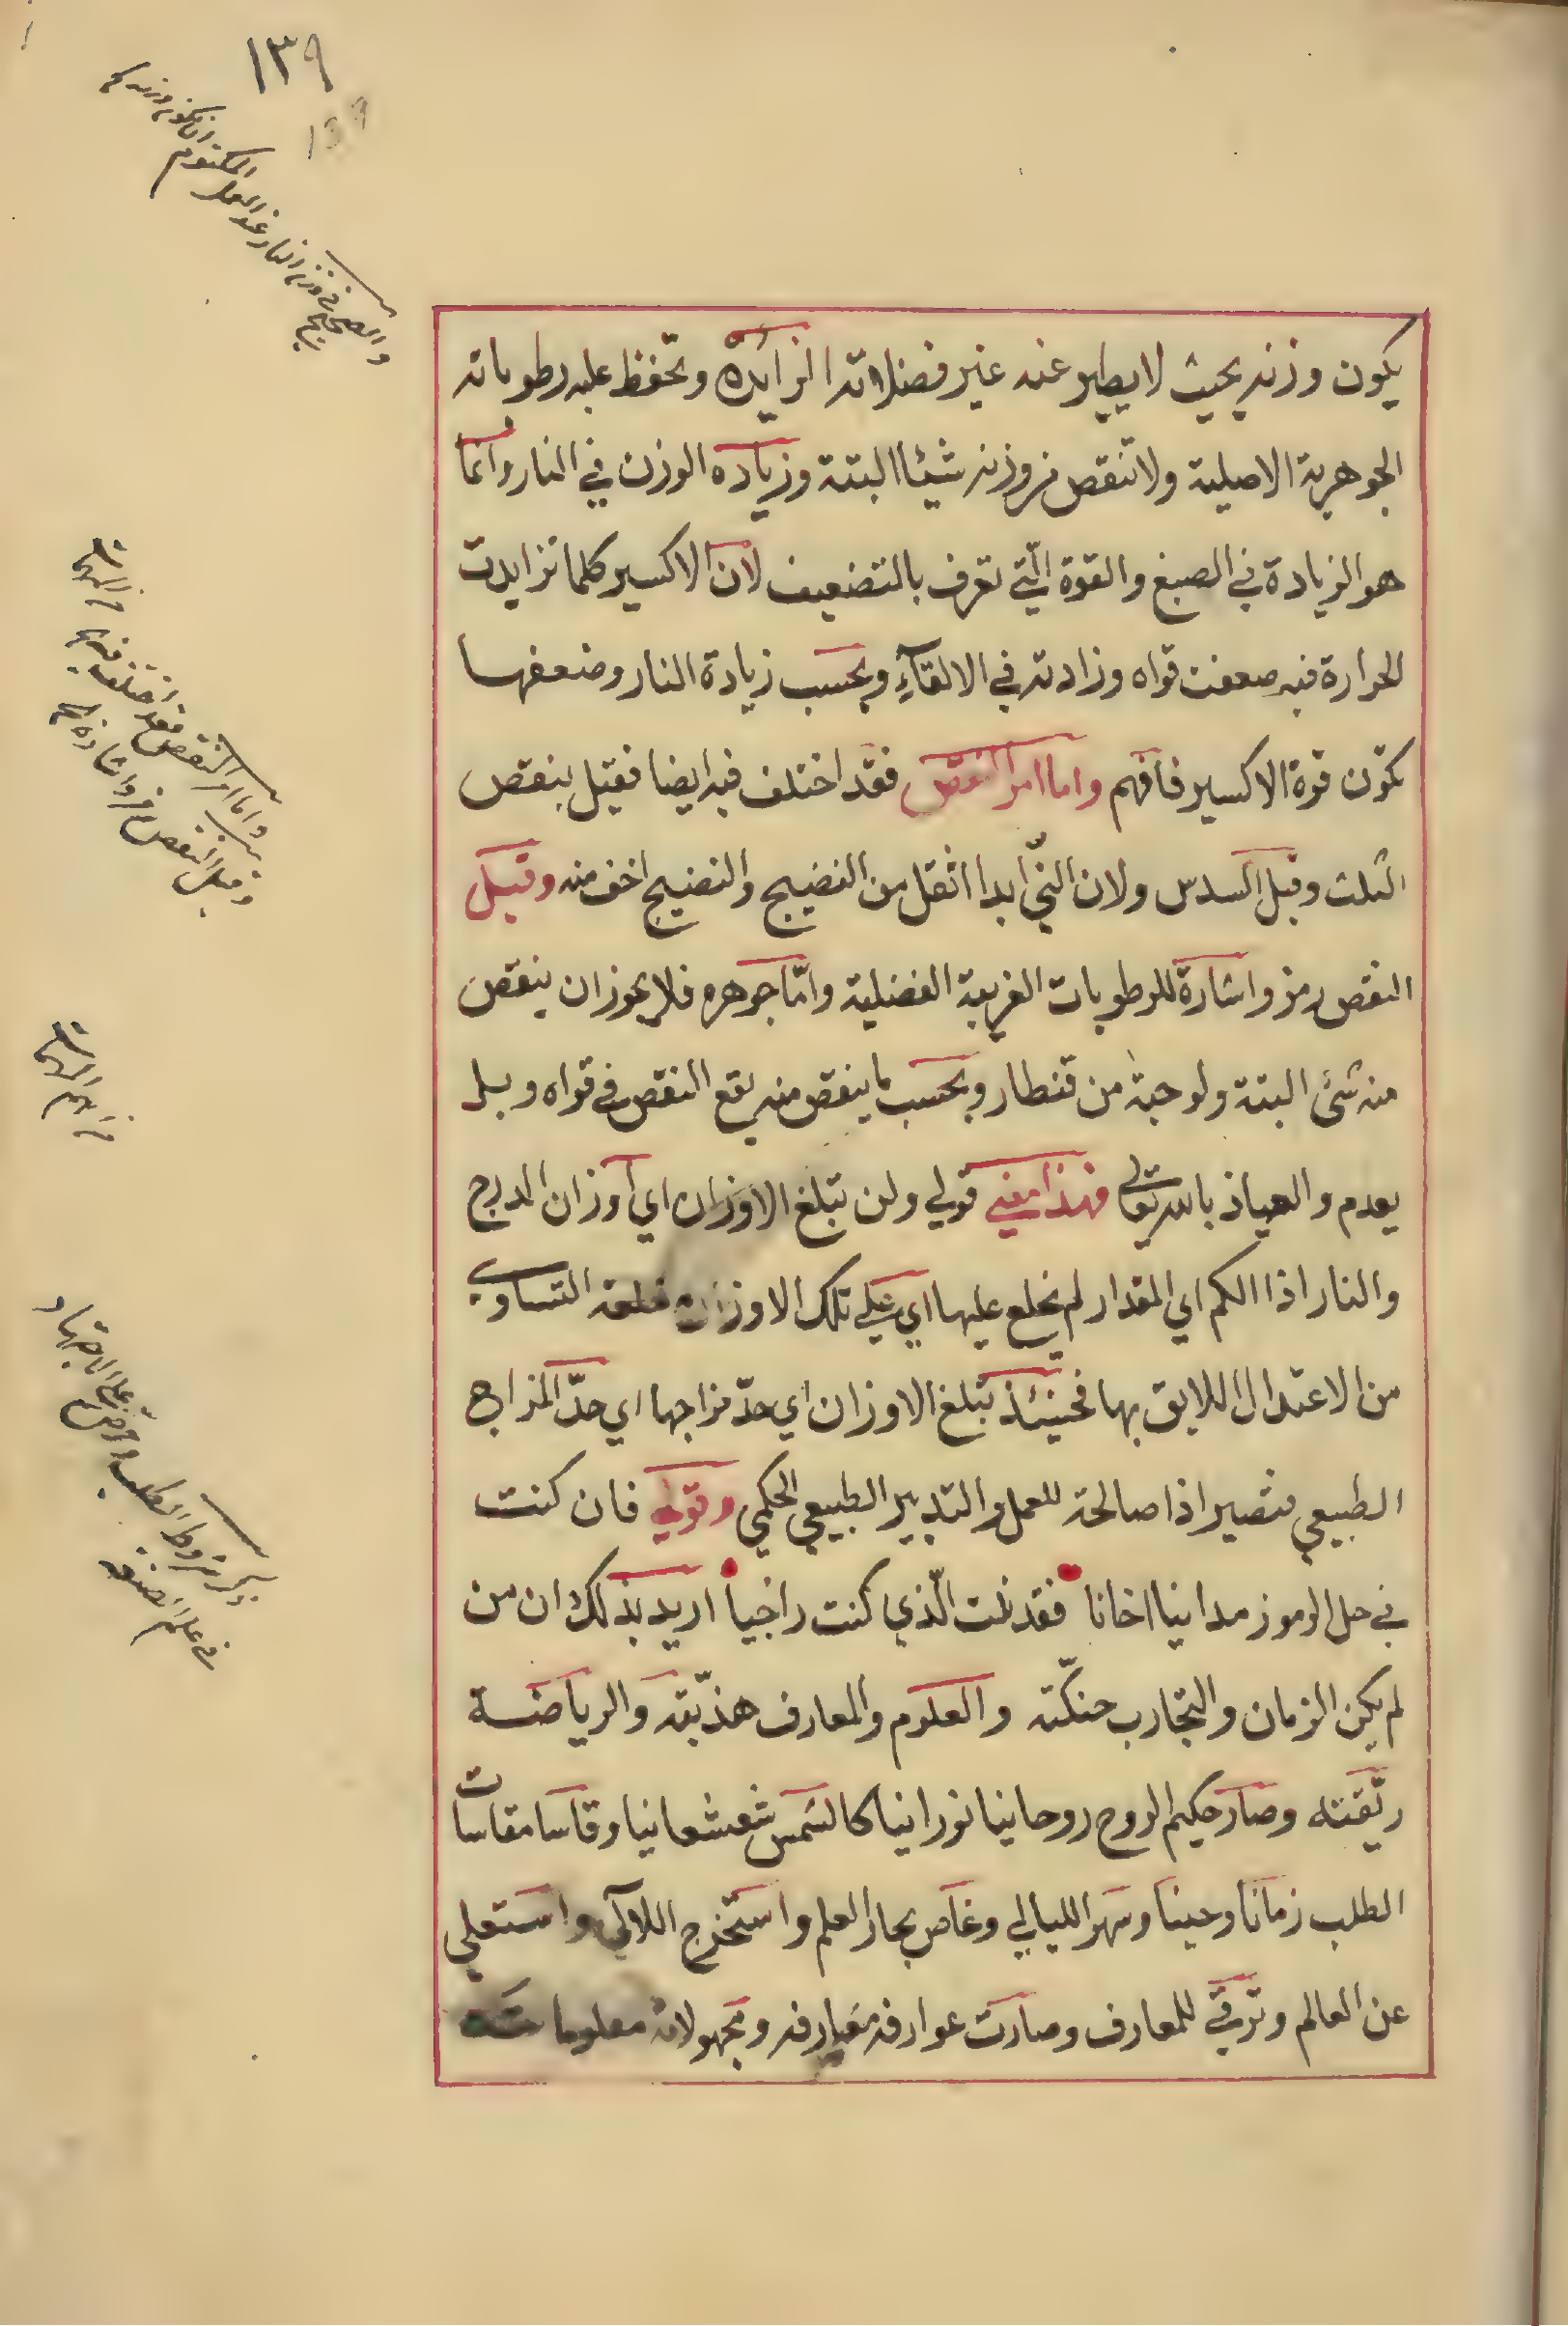 ١٣٩
139
والصحيح في وزن النار عند العمل المكتوم ان يكون وزنه
يكون وزنه بحيث لا يطير عنه غير فضلاته الزايدة وتحفظ عليه رطوباته
الجوهرية الاصلية ولا تنقص من وزنه شيئا البتة وزيادة الوزن في النار وانما
هو الزيادة في الصبغ والقوة الّتي تعرف بالتضعيف لان الاكسير كلما تزايدت
الحرارة فيه ضعفت قواه وزادته في الالقآءِ وبحسب زيادة النار وضعفها
تكون قوة الاكسير فافهم واما امر النقص فقد اختلف فيه ايضا فقيل ينقص
الثلث وقيل السدس ولان النّي ابدا اثقل من النضيج والنضيج اخف منه وقيل
النقص رمز واشارة للرطوبات الغريبة الفضلية وامّا جوهره فلا يجوز ان ينقص
منه شئ البتة ولو حبة من قنطار وبحسب ما ينقص منه يقع النقص في قواه وبل
يعدم والعياذ بالله تعالى فهذا معنى قولي ولن تبلغ الاوزان اي اوزان المدرج
والنار اذا الكم اي المقدار لم يخلع عليها اي على تلك الاوزان خلعة التساوي
من الاعتدال اللايق بها فحينئذ تبلغ الاوزان اي حدّ مزاجها اي حدّ المزاج
الطبيعي فتصير اذا صالحة للعمل والتدبير الطبيعي الحكمي وقولي فان كنت
في حل الرموز مدانيا اخانا فقد نلت الّذي كنت راجياً اريد بذلك ان من
لم يكن الزمان والتجارب حنكّته والعلوم والمعارف هذّبته والرياضة
ريّقته وصار حكيم الروح روحانيا نورانيا كالشمس شعشعانيا وقاسا مقاسات
الطلب زمانا وحينا وسهر الليالي وغاص بحار العلم واستخرج اللآلي واستعلى
عن العالم وترقى للمعارف وصارت عوارفه معارفه ومجهولاته معلوماته
واما امر النقص فقد اختلف فيه
وقيل النقص رمز واشارة
ذكر شروط الطلب والحرص على الاجتهاد
في علم الصنعة